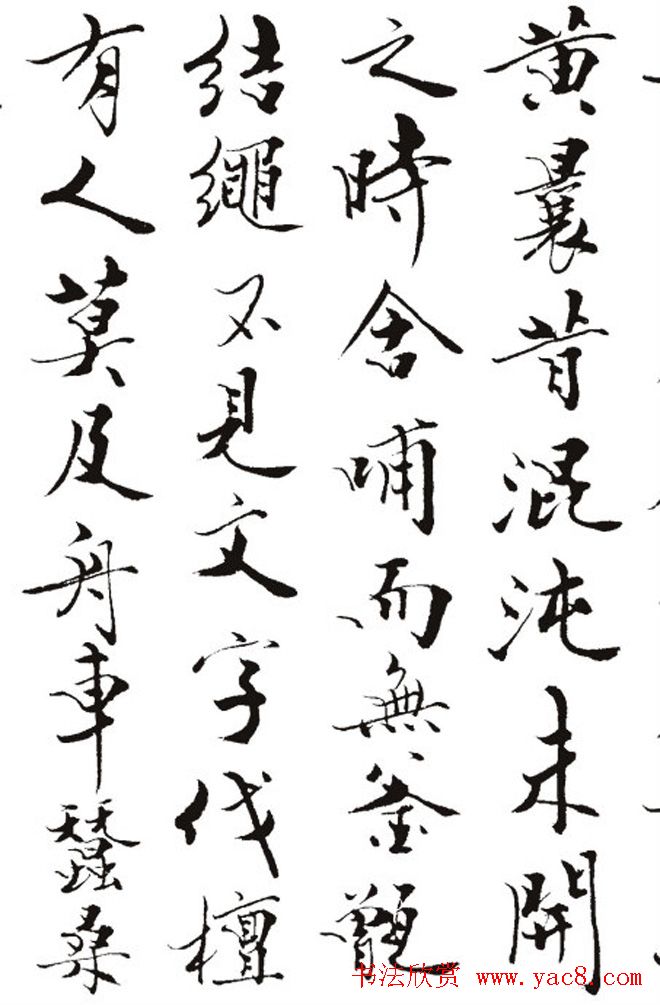 黄曩昔混沌未開
之時含哺而無釜甑
結繩不見文字伐檀
有人莫及舟車蠶桑
书法欣赏 www.yac8.com